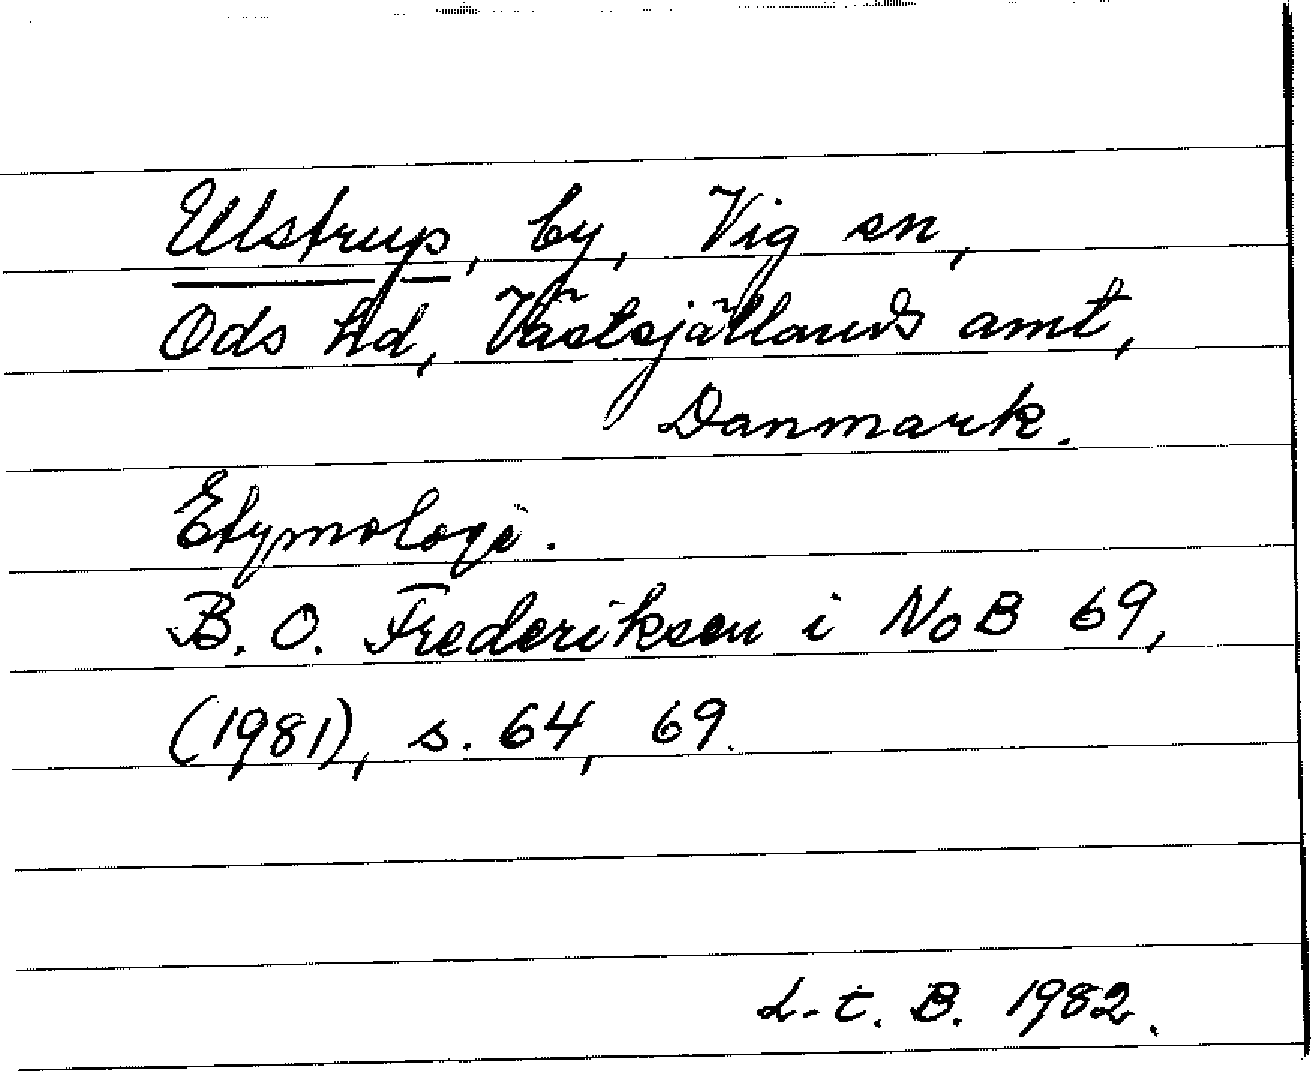 Ulstrup, by, Vig sn,
Ods hd, Västsjällands amt,
Danmark.
Etymologi.
B. O. Frederiksen i NoB 69,
(1981), s. 64, 69.
L-t. B. 1982.